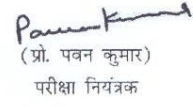 Pawan Kumar
(प्रो. पवन कुमार)
परीक्षा नियंत्रक